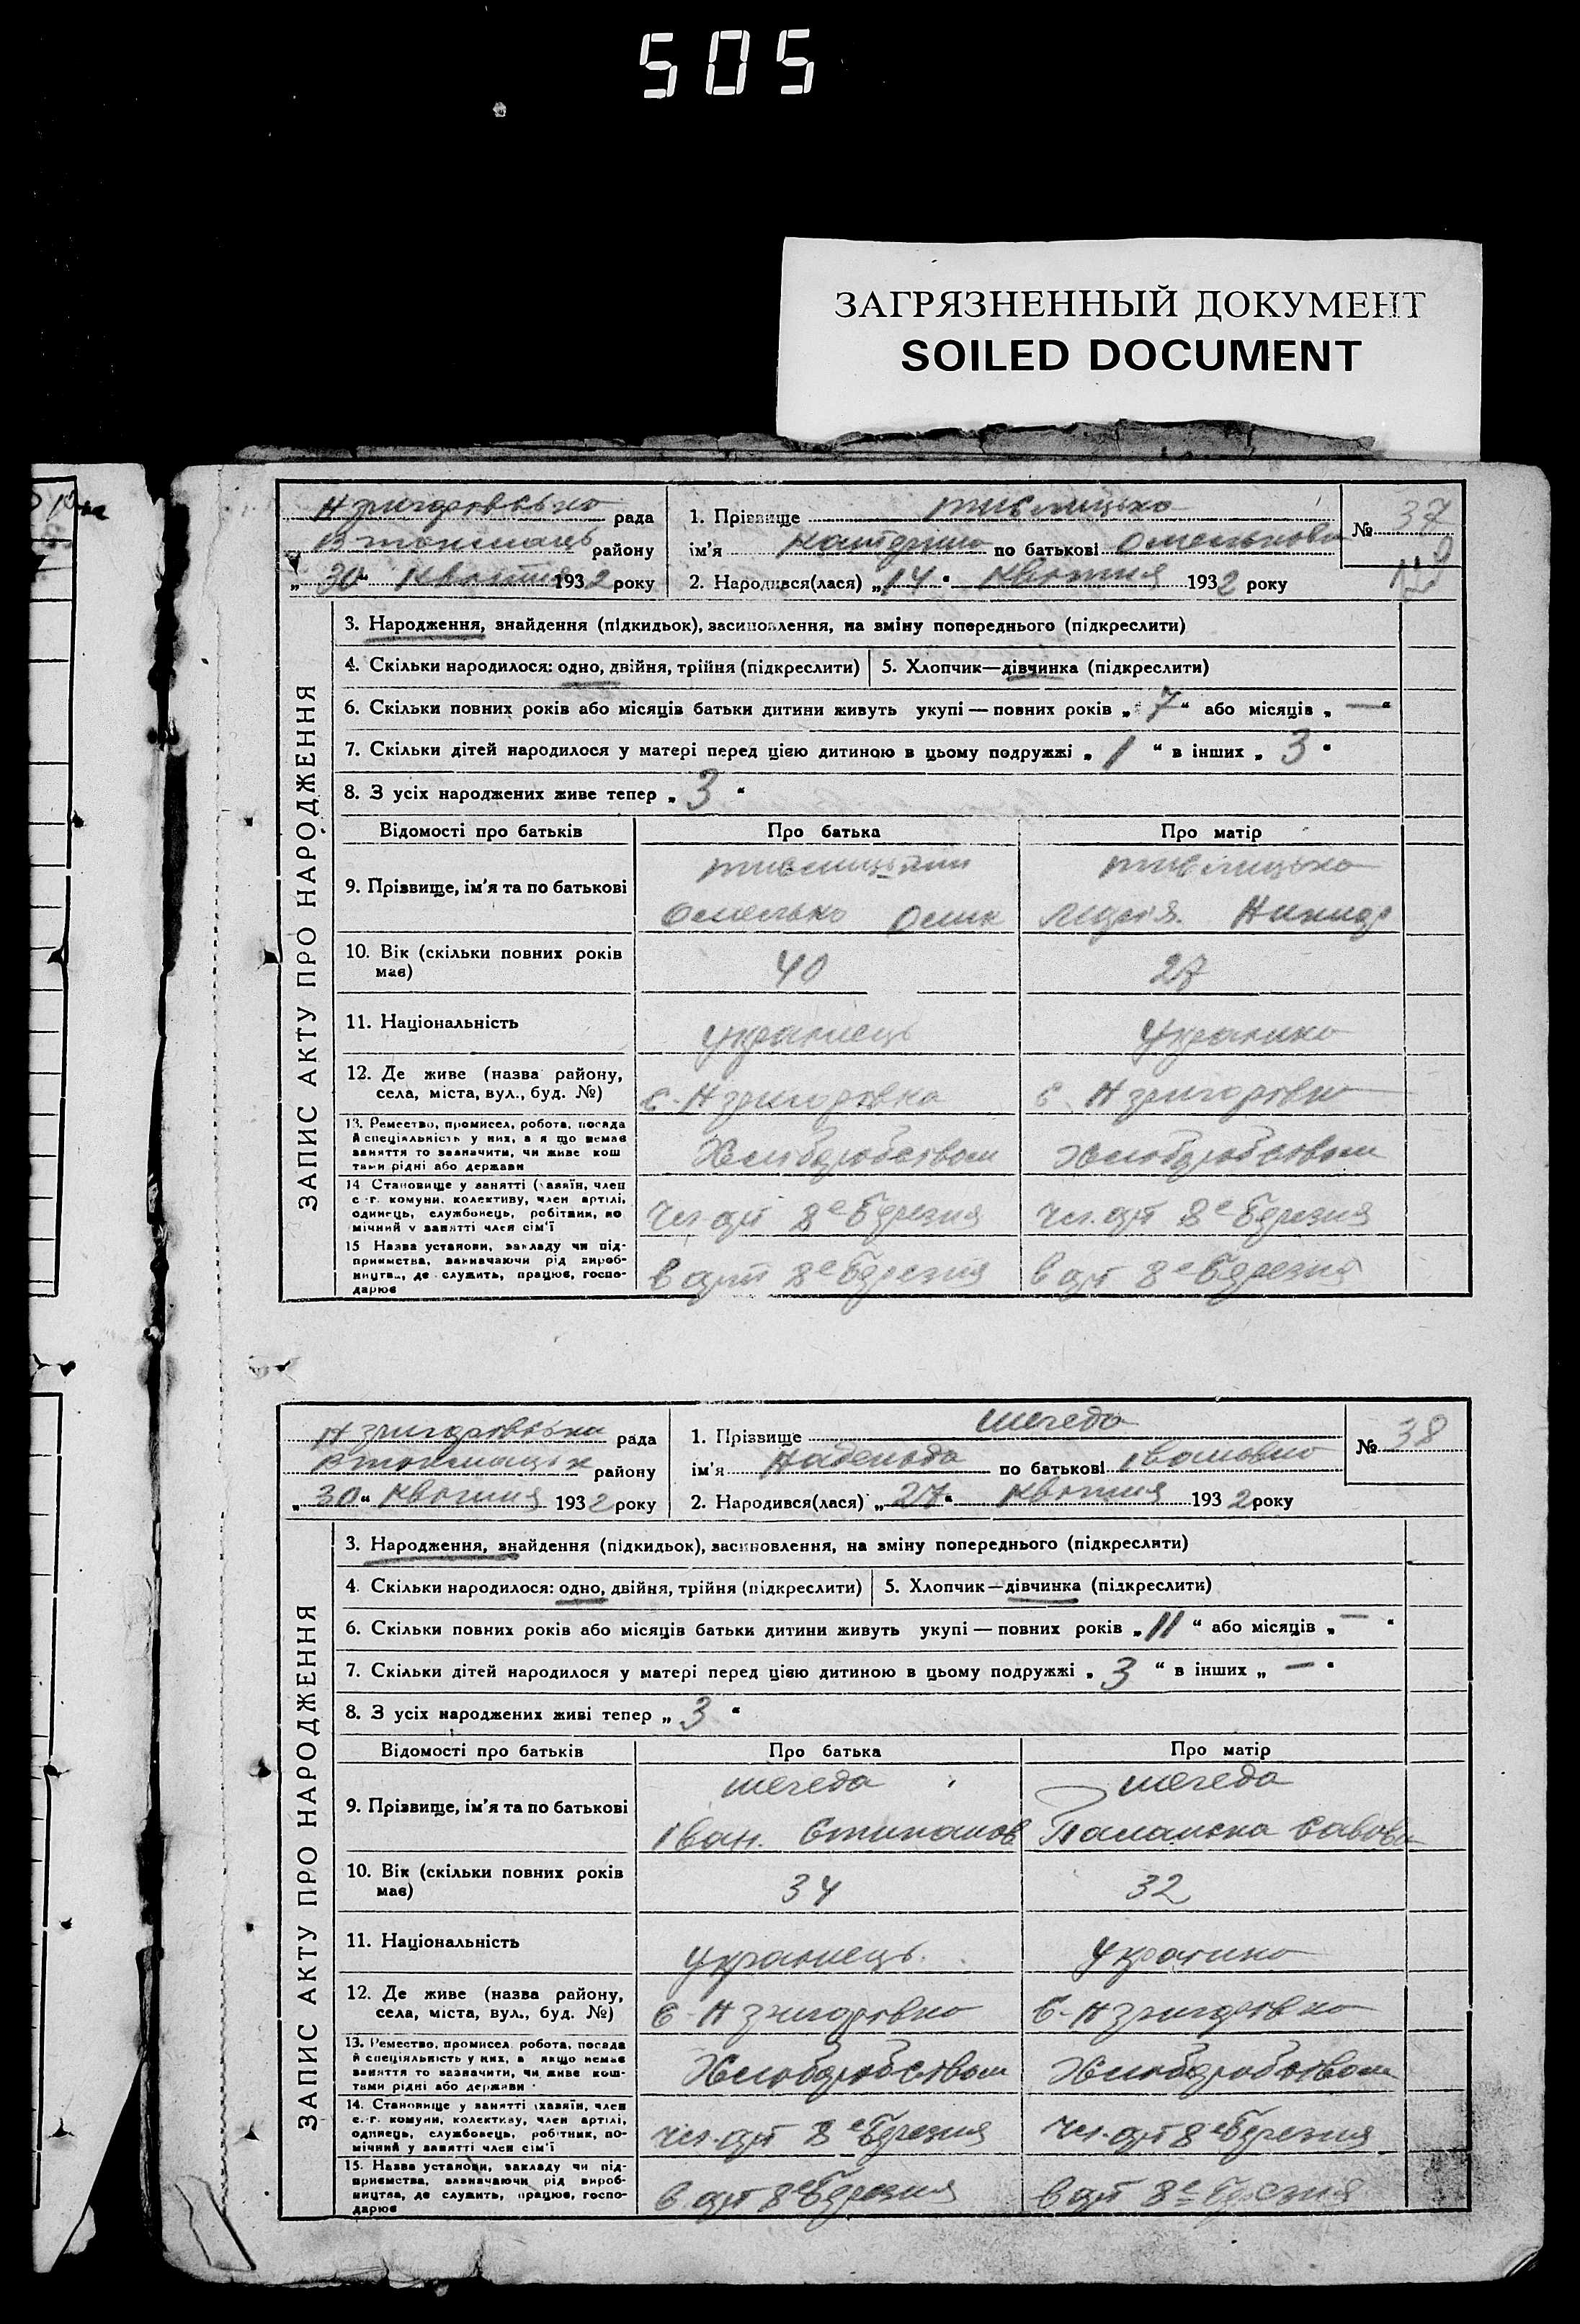 505
ЗАГРЯЗНЕННЫЙ ДОКУМЕНТ
SOILED DOCUMENT
ЗАПИС АКТУ ПРО НАРОДЖЕННЯ
Н григоровська рада
В токмацьк району
„30“ квітня 1932 року
1. Прізвище
ім'я по батькові Омельковн
2. Народився(лася) „14“ квітня 1932 року
№ 37
3. Народження, знайдення (підкидьок), засиновлення, на зміну попереднього (підкреслити)
4. Скільки народилося: одно, двійня, трійня (підкреслити) 5. Хлопчик—дівчинка (підкреслити)
6. Скільки повних років або місяців батьки дитини живуть укупі — повних років „7“ або місяців „—“
7. Скільки дітей народилося у матері перед цією дитиною в цьому подружжі „1“ в інших „3“
8. З усіх народжених живе тепер „3“
Відомості про батьків Про батька Про матір
9. Прізвище, ім'я та по батькові
Омелько
10. Вік (скільки повних років має) 40 27
11. Національність українець українка
12. Де живе (назва району, села, міста, вул., буд. №) с. Н григоровка с. Н григоровка
13. Ремество, промисел, робота, посада й спеціяльність у них, а я що немає заняття то зазначити, чи живе коштами рідні або держави Хліборобством Хліборобством
14 Становище у занятті (хазяїн, член с.-г. комуни, колективу, член артілі, одинець, службовець, робітник, помічний у занятті член сім'ї Чл. арт 8е березня Чл. арт 8е березня
15 Назва установи, закладу чи підприємства, зазначаючи рід виробництва, де служить, працює, господарює в арт 8е березня в арт 8е березня
ЗАПИС АКТУ ПРО НАРОДЖЕННЯ
Н григоровська рада
В токмацьк району
„30“ квітня 1932 року
1. Прізвище Шегеда
ім'я по батькові Івановна
2. Народився(лася) „27“ квітня 1932 року
№ 38
3. Народження, знайдення (підкидьок), засиновлення, на зміну попереднього (підкреслити)
4. Скільки народилося: одно, двійня, трійня (підкреслити) 5. Хлопчик—дівчинка (підкреслити)
6. Скільки повних років або місяців батьки дитини живуть укупі — повних років „11“ або місяців „—“
7. Скільки дітей народилося у матері перед цією дитиною в цьому подружжі „3“ в інших „—“
8. З усіх народжених живі тепер „3“
Відомості про батьків Про батька Про матір
9. Прізвище, ім'я та по батькові Шегеда Шегеда
Іван. Степанов Савовн
10. Вік (скільки повних років має) 34 32
11. Національність українець українка
12. Де живе (назва району, села, міста, вул., буд. №) с. Н григоровка с. Н григоровка
13. Ремество, промисел робота, посада й спеціяльність у них, а якщо немає заняття то зазначити, чи живе коштами рідні або держави Хліборобством Хліборобством
14. Становище у занятті (хазяїн, член с.-г. комуни, колективу, член артілі, одинець, службовець, робітник, помічний у занятті член сім'ї Чл. арт 8е березня Чл. арт 8е березня
15. Назва установи, закладу чи підприємства, зазначаючи рід виробництва, де служить, працює, господарює в арт 8е березня в арт 8е березня